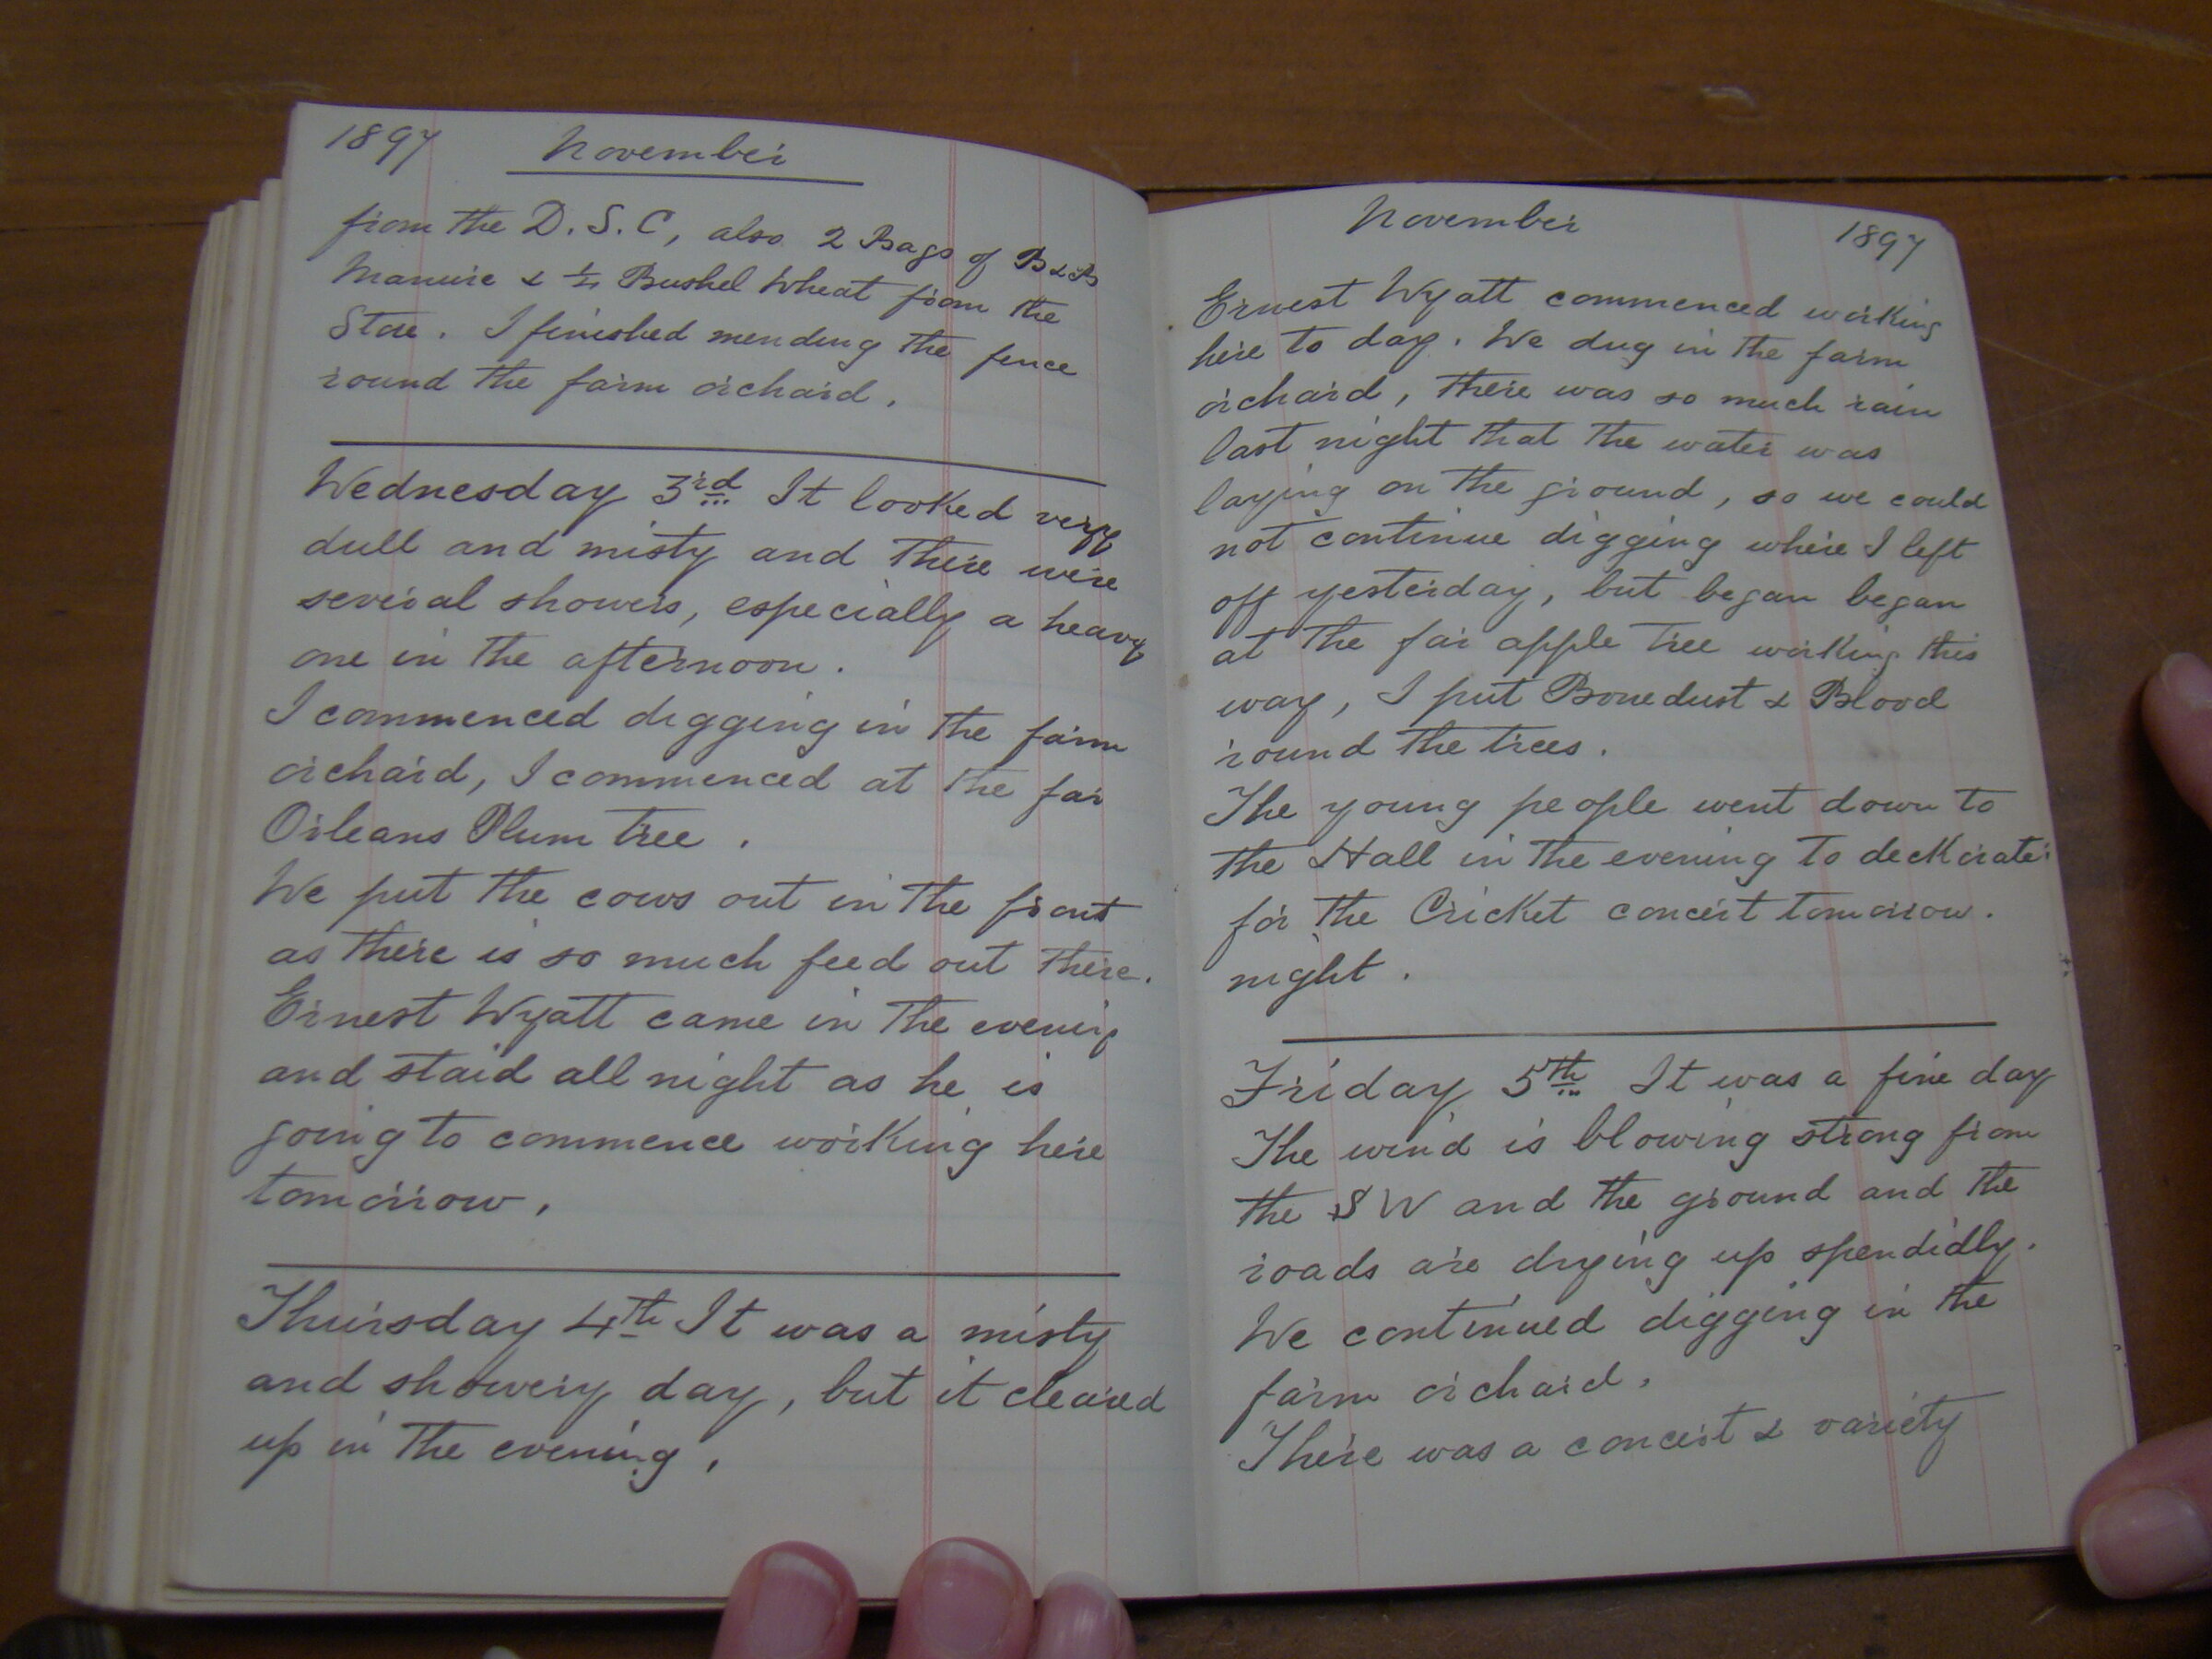 1897 November
from the D. S. C, also 2 Bags of B & B
Manure & ½ Bushel Wheat from the
Store. I finished mending the fence
round the farm orchard.
Wednesday 3rd It looked very
dull and misty and there were
several showers, especially a heavy
one in the afternoon.
I commenced digging in the farm
orchard, I commenced at the far
Orleans Plum tree.
We put the cows out in the front
as there is so much feed out there.
Ernest Wyatt came in the evening
and staid all night as he is
going to commence working here
tomorrow.
Thursday 4th It was a misty
and showery day, but it cleared
up in the evening.
November 1897
Ernest Wyatt commenced working
here to day. We dug in the farm
orchard, there was so much rain
last night that the water was
laying on the ground, so we could
not continue digging where I left
off yesterday, but began began
at the far apple tree working this
way, I put Bonedust & Blood
round the trees.
The young people went down to
the Hall in the evening to deckorate
for the Cricket concert tomorrow.
night.
Friday 5th It was a fine day
The wind is blowing strong from
the SW and the ground and the
roads are drying up spendidly.
We continued digging in the
farm orchard.
There was a concert & variety